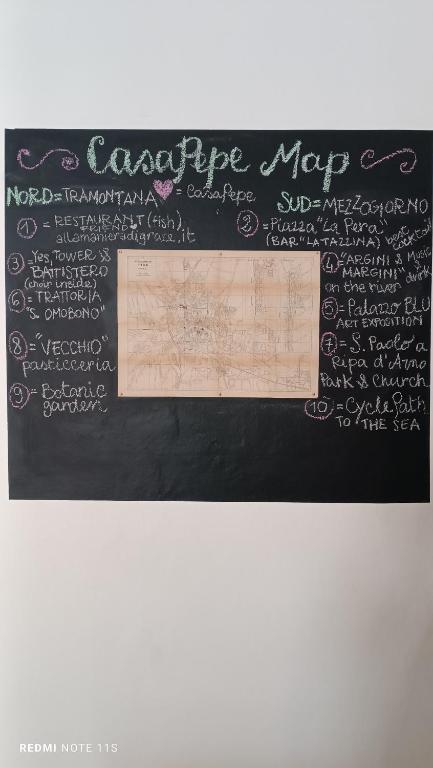 CasaPepe Map
NORD=TRAMONTANA ♥=CasaPepe
SUD=MEZZOGIORNO
1 = RESTAURANT (fish)
FRIEND
allamanieradigrace,it
2 = Piazza "La Pera"
(BAR "LA TAZZINA) best cocktail
3 = Yes, TOWER &
BATTISTERO
(choir inside)
4 "ARGINI & Music
MARGINI" drink
on the river
6 = TRATTORIA
"S. OMOBONO"
5 = Palazzo BLU
ART EXPOSITION
8 = "VECCHIO"
pasticceria
7 = S. Paolo a
Ripa d'Arno
Park & Church
9 = Botanic
garden
10 = Cycle Path
TO THE SEA
REDMI NOTE 11S